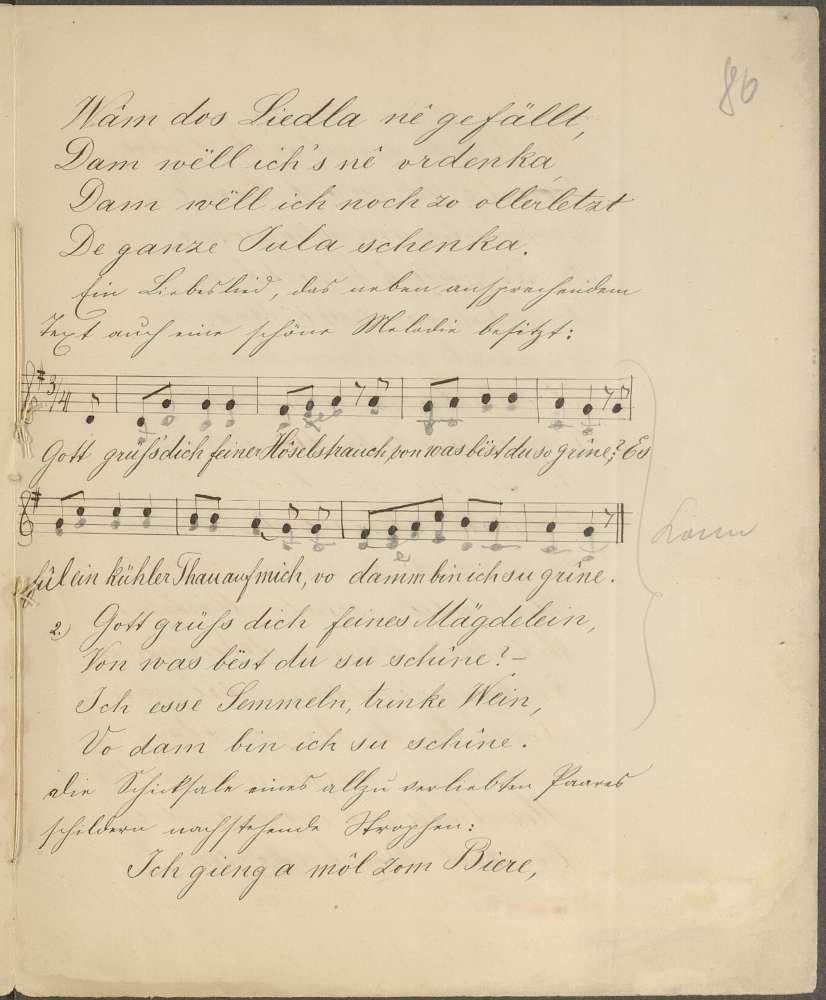 86
Wâm dos Liedla nê gefällt,
Dam wëll ich's nê ordenka,
Dam wëll ich noch zo ollerletzt
De ganze Jula schenka.
Ein Liebeslied, das neben ansprechendem
Text auch eine schöne Melodie besitzt:
3/4
Gott grüfs dich feiner Hôselstrauch, von was bëst du so grîne? Es
fûl ein kühler Thau auf mich, vo damm bin ich su grîne.
2.) Gott grüfs dich feines Mägdelein,
Von was bëst du su schîne? –
Ich esse Semmeln, trinke Wein,
Vo dam bin ich su schîne.
Die Schicksale eines allzu verliebten Paares
schildern nachstehende Strophen:
Ich gieng a môl zom Biere,